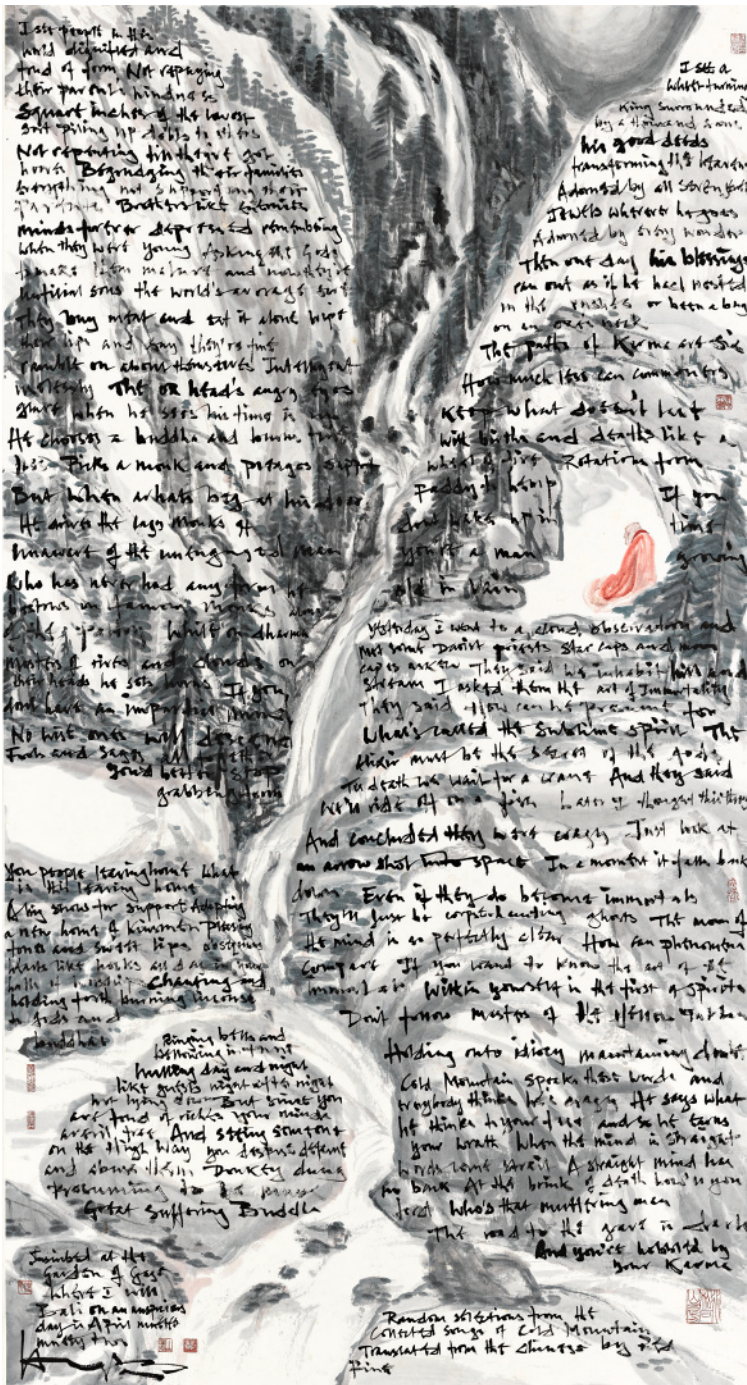 I see people in this
world dignified and
fond of form Not repaying
their parents kindness
Square inches of the lowest
sort piling up debts to others
Not repenting till they've got
hooves Begrudging their families
everything not supporting their
parents Brothers like enemies
minds forever depressed remembering
when they were young Asking the Gods
to make them mature and now they're
unfilial sons the world's average sort
They buy meat and eat it alone wipe
their lips and say they're fine
ramble on about themselves Intelligent
The ox head's angry eyes
when he sees his time is
He chooses a buddha and burns
Picks a monk and
But when arhats beg at his door
He drives the lazy monks off
Unaware of the unengaged man
Who has never had any form he
bestows on famous monks
while on dharma
masters of rites and clouds on
their heads he sets horns If you
don't have an impartial mind
No wise ones will descend
Fools and Sages all
You'd better stop
grabbing form
You people leaving home What
is this leaving home
A big show for support Adopting
a new home of kinsmen
tones and sweet lips obsequious
hearts like hooks all day in your
halls of worship Chanting and
holding forth burning incense
to Gods and
buddhas
Ringing bells and
bellowing
hulling day and night
like guests night after night
not lying down But since you
are fond of riches your minds
aren't free And seeing someone
on the High Way you despise defame
and abuse them Donkey dung
presuming to be musk
Great suffering Buddha
I see a
wheel turning
King surrounded
by a thousand sons
his good deeds
transforming the heavens
Adorned by all seven
Jewels wherever he goes
Adorned by every wonder
Then one day his blessings
ran out as if he had nested
in the rushes or been a bug
on an ox's neck
The paths of Karma are six
How much less can commoners
Keep what doesn't last
With births and deaths like a
wheel of fire Rotations from
Paddy to hemp If you
don't wake up in time
you're a man growing
old in vain
Yesterday I went to a cloud observatory and
met some Daoist priests Star caps and moon
capes askew They said we inhabit hill and
stream I asked them the art of Immortality
They said How can he presume for
What's called the sublime spirit The
elixir must be the secret of the gods
Til death we wait for a crane And they said
We'll ride off on a fish Later I thought this through
And concluded they were crazy Just look at
an arrow shot into space In a moment it falls back
down Even if they do become immortals
They'll just be corpse haunting ghosts The moon of
the mind is so perfectly clear How can phenomena
Compare If you want to know the art of the
immortals Within yourself is the first of spirits
Don't follow masters of the Yellow Turban
Holding onto idiocy maintaining doubt
Cold Mountain speaks these words and
everybody thinks he's crazy He says what
he thinks to your face and so he earns
your wrath When the mind is straight
words come strait A straight mind has
no back At the brink of death how's you
feel Who's that muttering man
The road to the grave is dark
And you're hobbled by
Your Karma
Inscribed at the
Garden of Gaze
Where I will
Bali on an auspicious
day in April nineteen
ninety two
Random selections from the
Collected Songs of Cold Mountain
Translated from the Chinese by Red
Pine